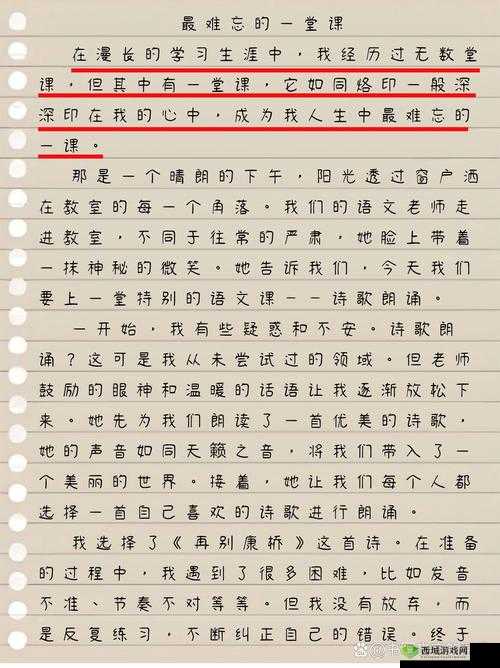 最难忘的一堂课
在漫长的学习生涯中，我经历过无数堂
课，但其中有一堂课，它如同烙印一般深
深印在我的心中，成为我人生中最难忘的
一课。
那是一个晴朗的下午，阳光透过窗户洒
在教室的每一个角落。我们的语文老师走
进教室，不同于往常的严肃，她脸上带着
一抹神秘的微笑。她告诉我们，今天我们
要上一堂特别的语文课——诗歌朗诵。
一开始，我有些疑惑和不安。诗歌朗
诵？这可是我从未尝试过的领域。但老师
鼓励的眼神和温暖的话语让我逐渐放松下
来。她先为我们朗读了一首优美的诗歌，
她的声音如同天籁之音，将我们带入了一
个美丽的世界。接着，她让我们每个人都
选择一首自己喜欢的诗歌进行朗诵。
我选择了《再别康桥》这首诗。在准备
的过程中，我遇到了很多困难，比如发音
不准、节奏不对等等。但我没有放弃，而
是反复练习，不断纠正自己的错误。终于
西域游戏网